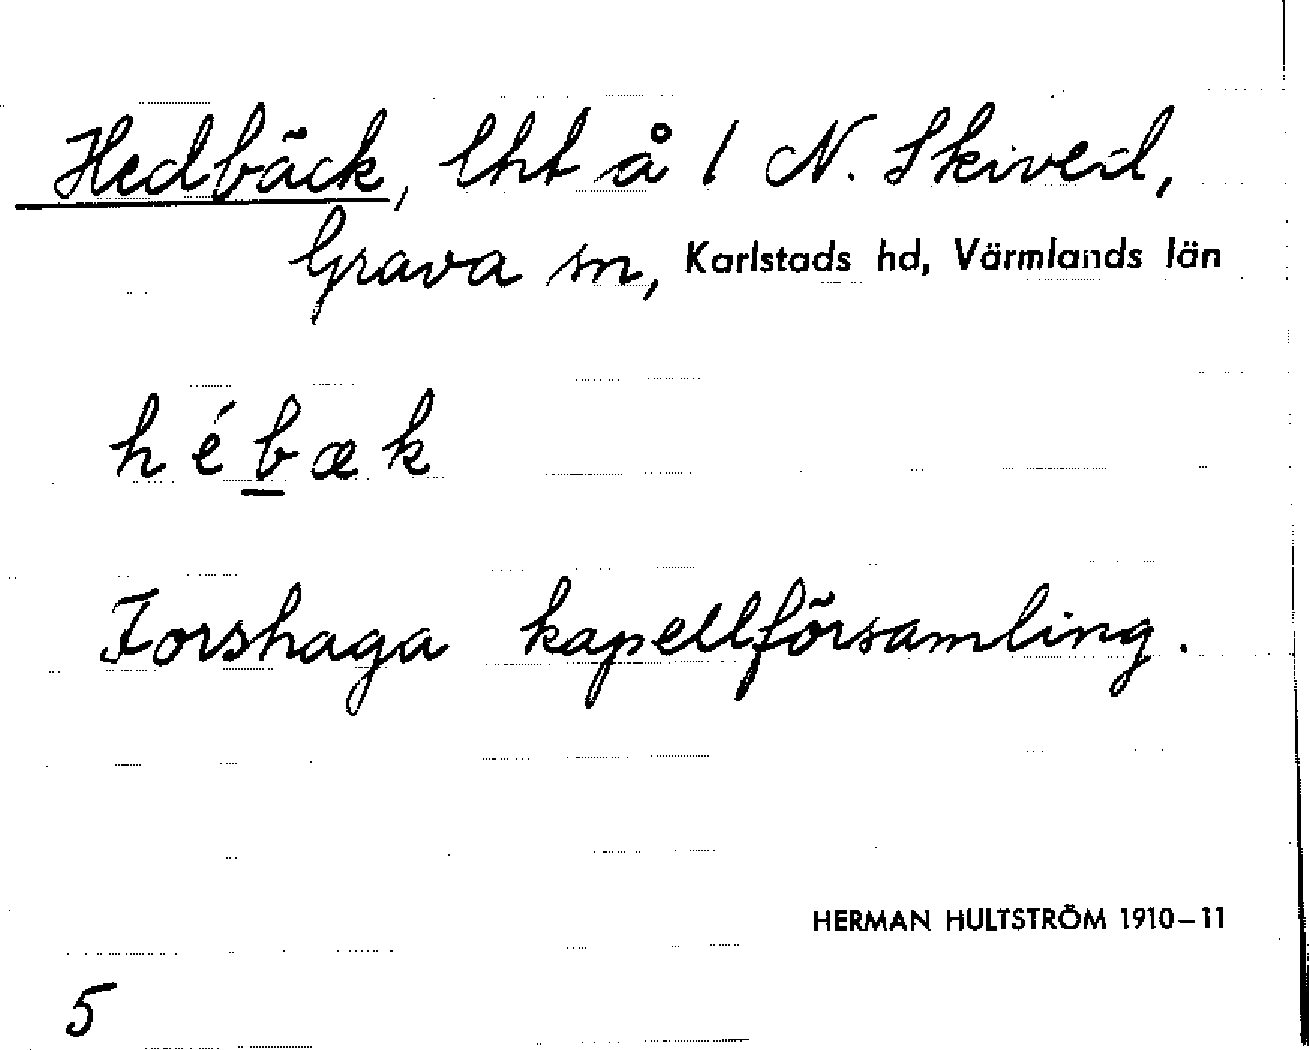 Hedbäck, lht å 1 N. Skived,
Grava sn, Karlstads hd, Värmlands län
hébæk
Forshaga kapellförsamling.
HERMAN HULTSTRÖM 1910–11
5